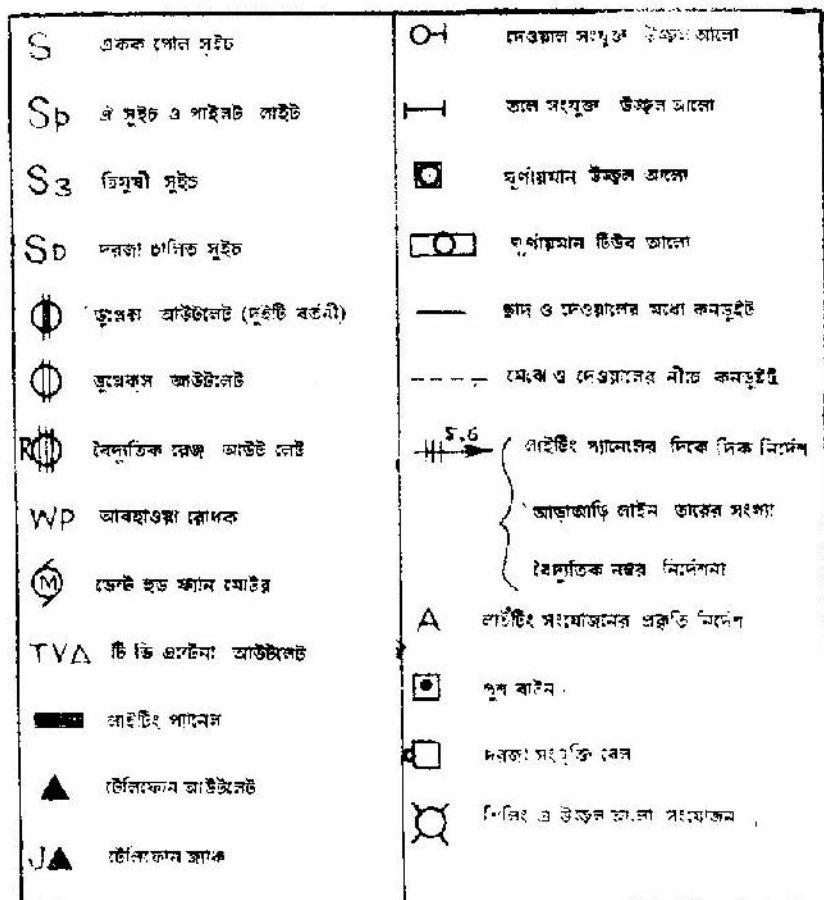 S একক পোল সুইচ
Sp ঐ সুইচ ও পাইলট লাইট
S3 ত্রিমুখী সুইচ
SD দরজা চালিত সুইচ
ডুপ্লেক্স আউটলেট (দুইটি বর্তনী)
ডুপ্লেক্স আউটলেট
R বৈদ্যুতিক রেঞ্জ আউট লেট
WP আবহাওয়া রোধক
M ভেন্ট হুড ফ্যান মোটর
TVA টি ভি এন্টেনা আউটলেট
লাইটিং প্যানেল
টেলিফোন আউটলেট
J টেলিফোন জ্যাক
দেওয়াল সংযুক্ত উজ্জ্বল আলো
তলে সংযুক্ত উজ্জ্বল আলো
ঘূর্ণায়মান উজ্জ্বল আলো
ঘূর্ণায়মান টিউব আলো
ছাদ ও দেওয়ালের মধ্যে কনডুইট
মেঝে ও দেওয়ালের নীচে কনডুইট
5.6 লাইটিং প্যানেলের দিকে দিক নির্দেশ
আড়াআড়ি লাইন তারের সংখ্যা
বৈদ্যুতিক নম্বর নির্দেশনা
A লাইটিং সংযোজনের প্রকৃতি নির্দেশ
পুশ বাটন
দরজা সংযুক্তি বেল
সিলিং এ উজ্জ্বল আলো সংযোজন